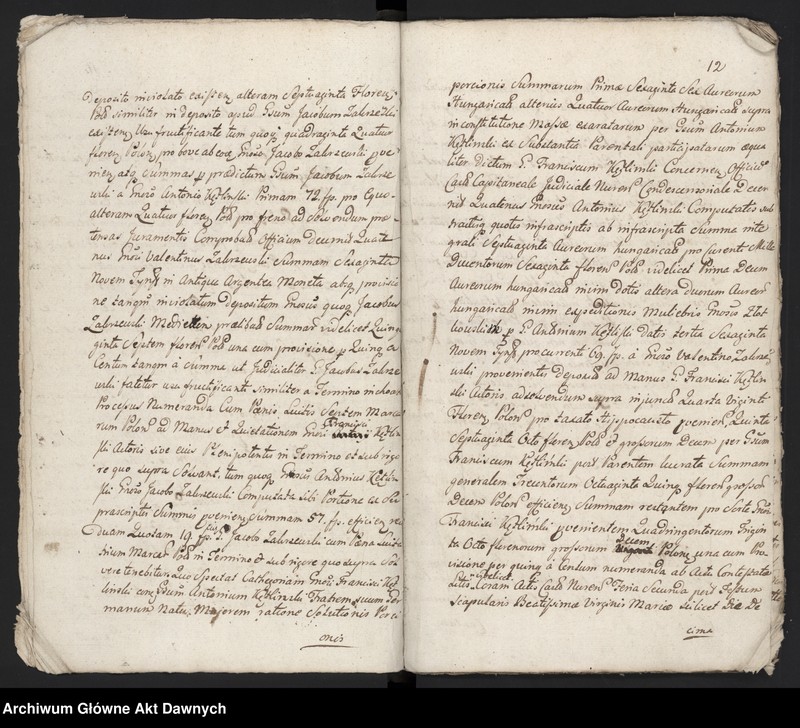 Deposito inviolato existen alteram Septuaginta Floren
Pol similiter in deposito apud Gsum Jacobum Zakrzewski
existen usu fructificante tum quoq quadraginta Quatuor
floren Polon pro bove ab eod Gnoso Jacobo Zakrzewski
nien atq summas p prædictum Gsum Jacobum Zakrze
wski a Gnoso Antonio Kętlinski Primam 72 fp. pro Equo
alteram Quatuor floren Pol pro freno ad Solvendum præ
tensas Juramentis Comprobat Officium Decernit Quate
nus Gnosi Valentinus Zakrzewski Summam Sexaginta
Novem Tynf in Antiqua Argentea Moneta absq provisio
ne tanqm inviolatum depositum Gnosus quoq Jacobus
Zakrzewski Medietatem prælibat Summar videlicet Quinqua
ginta Septem floren Pol una cum provisione p Quinq a
Centum tanqm a Summa ut Judicialiter G. Jacobus Zakrze
wski fatetur usu fructificante similiter a Termino inchoati
Processus Numeranda Cum Pænis Luitis Septem Marca
rum Polon ad Manus et Quietationem Gnosi Francisci Kętlin
ski Actoris sive eius Plenipotentis in Termino et sub rigo
re quo supra Solvant, tum quoq Gnosus Antonius Kętlin
ski Gnoso Jacobo Zakrzewski Computata sibi Portione ex Su
prascriptis Summis Summam 57. fp. efficien resi
duam Quotam 19. fp. G. Jacobo Zakrzewski cum Pæna Luita
trium Marcar Pol in Termino et sub rigore quo supra Sol
vere tenebitur Quo Spectat Cathegoriam Gnosi Francisci Kęt
linski con Gsum Antonium Kętlinski Fratrem suum Ger
manum Natu Majorem ratione Solutionis Porci
onis
12
porcionis Summarum Primæ Sexaginta Sex Aureorum
Hungarical alterius Quatuor Aureorum Hungarical supra
in constitutione Massæ exaratarum per Gsum Antonium
Kętlinski ex Substantia Parentali participatarum æqua
liter dictum G. Franciscum Kętlinski Concernen, Officiu
Castr Capitaneale Judiciale Nuren Condescensoriale decer
nit Quatenus Gnosus Antonius Kętlinski Computatis sub
tractisq quotis infrascriptis ab infrascripta Summa inte
grali Septuaginta Aureorum hungarical pro currenti Mille
Ducentorum Sexaginta floren Pol videlicet Prima Decem
Aureorum hungarical nim dotis altera duorum Aureor
hungarical nim expeditionis Muliebris Gnosis Zlot
kowskim p G. Antonium Kętlinski dati tertia Sexaginta
Novem Tynf procurenti 69. fp. a Gnoso Valentino Zakrze
wski provenientis deposit ad Manus G. Francisci Kętlin
ski Actoris adsolvendum supra injunct Quarta Viginti
Floren Polon pro taxato Hippocausto Quinta
Septuaginta Octo floren Pol et grossorum Decem per Gsum
Franciscum Kętlinski post Parentem levata Summam
generalem Trecentorum Octuaginta Quinq floren grossor
Decem Polon efficien Summam restantem pro Sorte Gnosi
Francisci Kętlinski provenientem Quadringentorum Trigin
ta Octo florenorum grossorum Decem Polon una cum Pro
visione per quinq a Centum numeranda ab Actu Contestatæ
Litis videlicet Coram Actis Castr Nuren Feria Secunda post Festum
Scapularis Beatissimæ Virginis Mariæ scilicet Die De
cima
Archiwum Główne Akt Dawnych